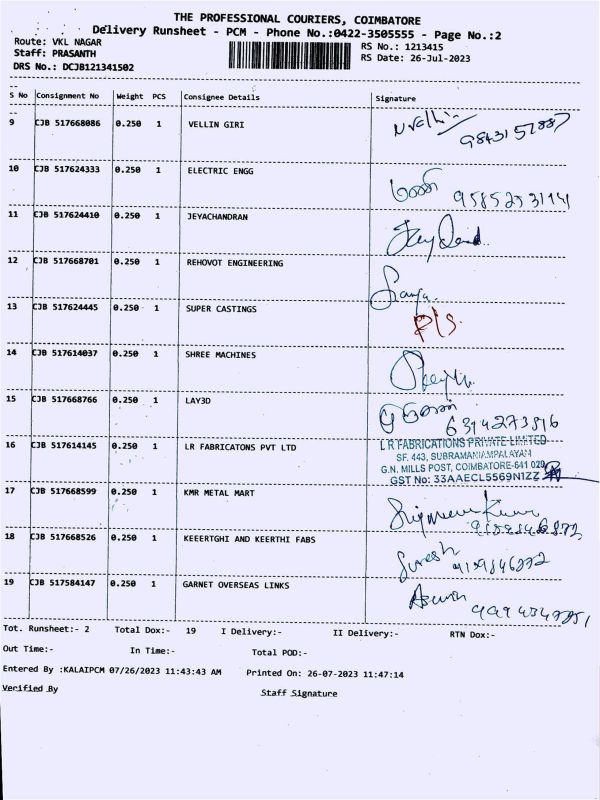 THE PROFESSIONAL COURIERS, COIMBATORE
Delivery Runsheet - PCM - Phone No.:0422-3505555 - Page No.:2
Route: VKL NAGAR RS No.: 1213415
Staff: PRASANTH RS Date: 26-Jul-2023
DRS No.: DCJB121341502
S No Consignment No Weight PCS Consignee Details Signature
9 CJB 517668086 0.250 1 VELLIN GIRI
10 CJB 517624333 0.250 1 ELECTRIC ENGG
11 CJB 517624410 0.250 1 JEYACHANDRAN
12 CJB 517668701 0.250 1 REHOVOT ENGINEERING
13 CJB 517624445 0.250 1 SUPER CASTINGS
P/S.
14 CJB 517614037 0.250 1 SHREE MACHINES
15 CJB 517668766 0.250 1 LAY3D
6374273816
16 CJB 517614145 0.250 1 LR FABRICATONS PVT LTD
L R FABRICATIONS PRIVATE LIMITED
SF. 443, SUBRAMANIAMPALAYAM
G.N. MILLS POST, COIMBATORE-641 029
GST No: 33AAECL5569N1ZZ
17 CJB 517668599 0.250 1 KMR METAL MART
18 CJB 517668526 0.250 1 KEEERTGHI AND KEERTHI FABS
Suresh
19 CJB 517584147 0.250 1 GARNET OVERSEAS LINKS
Tot. Runsheet:- 2 Total Dox:- 19 I Delivery:- II Delivery:- RTN Dox:-
Out Time:- In Time:- Total POD:-
Entered By :KALAIPCM 07/26/2023 11:43:43 AM Printed On: 26-07-2023 11:47:14
Verified By Staff Signature